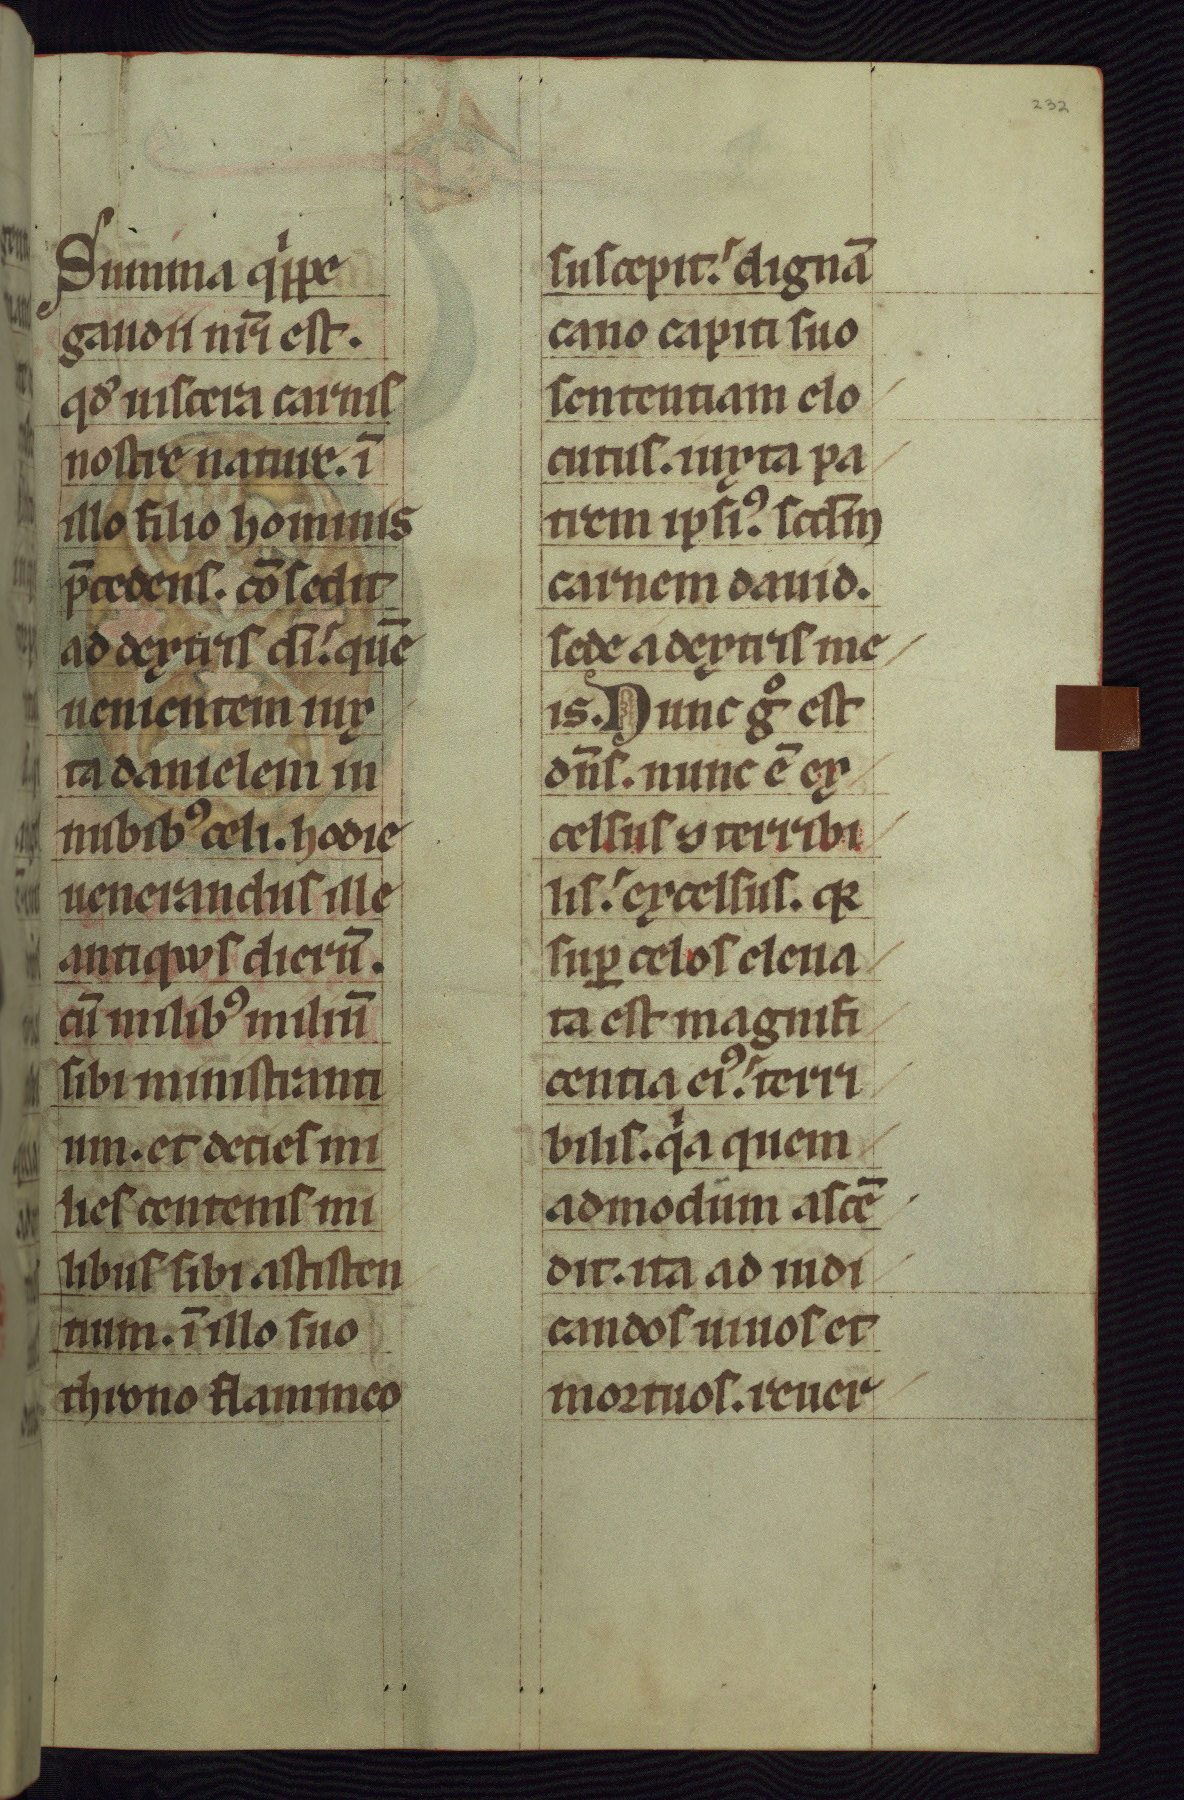 232
Summa q̍ppe
gaudii nr̄i est.
qd̕ uiscera carnis
nostre nature. ī
illo filio hominis
p̄cedens. cōsedit
ad dextris dī. quē
uenientem iux
ta danielem in
nubibꝰ celi. hodie
uenerandus ille
antiqus dierū.
cū milibꝰ miliū
sibi ministranti
um. et decies mi
lies centenis mi
libus sibi astisten
tium. ī illo suo
throno flammeo
suscepit. dignā
cano capiti suo
sententiam elo
cutus. iuxta pa
trem ipsiꝰ. scd̄m
carnem dauid.
sede a dextris me
is. Nunc gͦ est
dn̄s. nunc ē ex
celsus ⁊ terribi
lis. excelsus. qꝛ
suꝑ celos eleua
ta est magnifi
centia eiꝰ. terri
bilis. q̍a quem
admodum ascē
dit. ita ad iudi
candos uiuos et
mortuos. reuer